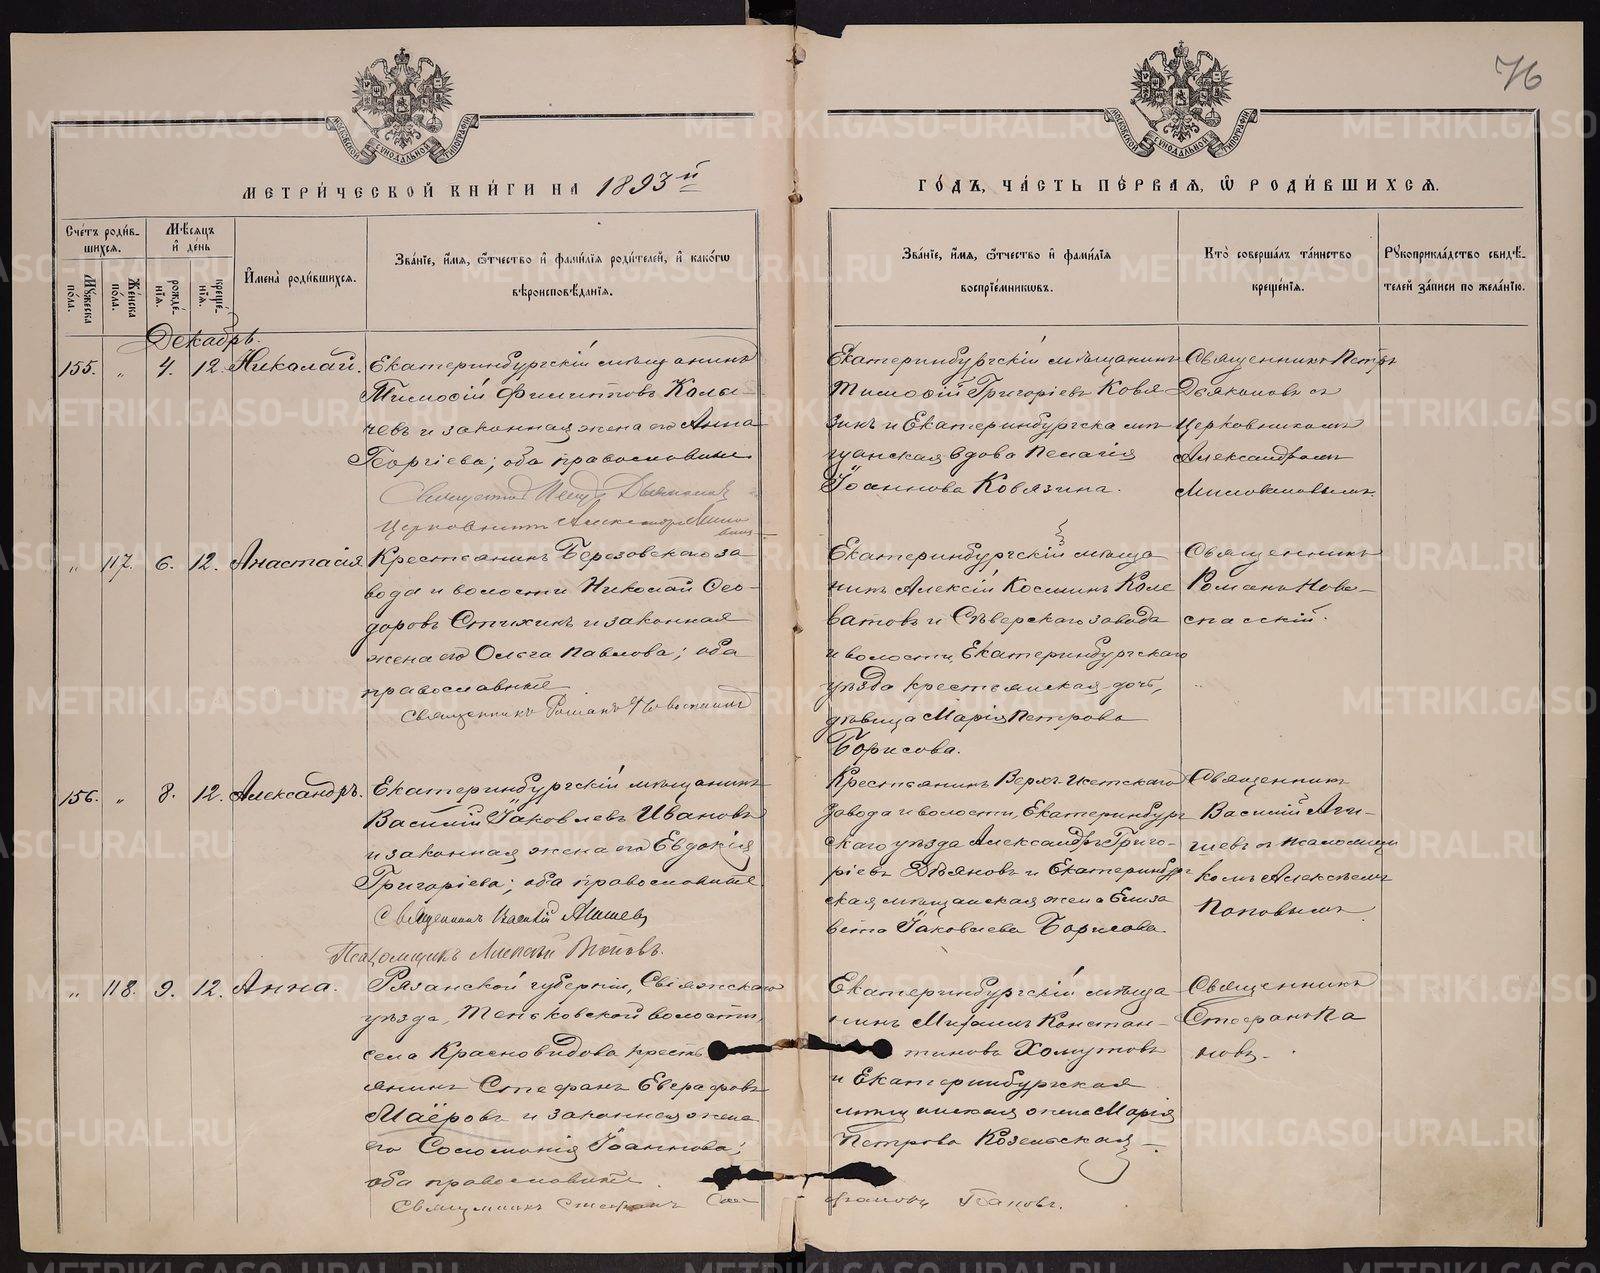 76
МЕТРИ́ЧЕСКОЙ КНИ́ГИ НА 1893й
ГО́ДЪ, ЧА́СТЬ ПЕ́РВАЯ, Ѿ РОДИ́ВШИХСЯ.
Сче́тъ роди́вшихся.
Мѣ́сяцъ и҆ де́нь
Му́жеска по́ла.
Же́нска по́ла.
рожде́нїя.
креще́нїя.
И҆мена̀ роди́вшихся.
Зва́нїе, и҆́мя, ѻ҆́тчество и҆ фами́лїя роди́телей, и҆ како́гѡ
вѣроисповѣ́данїя.
Зва́нїе, и҆́мя, ѻ҆́тчество и҆ фами́лїя
воспрїе́мникѡвъ.
Кто̀ соверша́лъ та́инство
креще́нїя.
Рꙋкоприкла́дство свидѣ́-
телей за́писи по жела́нїю.
Декабрь.
155. „ 4. 12. Николай.
Екатеринбургскій мѣщанинъ
Тимоѳій Филиповъ Колы-
чевъ и законная жена его Анна
Георгіева; оба православные
Священникъ Петръ Дьяконовъ
Церковникъ Александръ Мило
Екатеринбургскій мѣщанинъ
Тимоѳій Григоріевъ Ковя
зинъ и Екатеринбургска мѣ
щанская вдова Пелагія
Іоаннова Ковязина.
Священникъ Петръ
Дьяконовъ съ
церковникомъ
Александромъ
Миловановымъ.
„ 117. 6. 12. Анастасія
Крестьянинъ Березовскаго за
вода и волости Николай Ѳео-
доровъ Стихинъ и законная
жена его Ольга Павлова; оба
православные
Священникъ Романъ Новоспасскій
Екатеринбургскій мѣща
нинъ Алексій Косминъ Коле
ватовъ и Сѣверскаго завода
и волости, Екатеринбургскаго
уѣзда крестьянская дочь,
дѣвица Марія Петрова
Борисова.
Священникъ
Романъ Ново-
спасскій.
156. „ 8. 12. Александръ.
Екатеринбургскій мѣщанинъ
Василій Іаковлевъ Ивановъ
и законная жена его Евдокія
Григоріева; оба православные.
Священникъ Василій Агишевъ
Псаломщикъ Алексій Поповъ.
Крестьянинъ Верхъ-Исетскаго
завода и волости, Екатеринбург
скаго уѣзда Александръ Григо-
ріевъ и Екатеринбург
ская мѣщанская жена Елиза
вета Іаковлева Борисова.
Священникъ
Василій Аги-
шевъ съ псаломщи
комъ Алексѣемъ
Поповымъ.
„ 118. 9. 12. Анна.
Рязанской губерніи, Свіяжскаго
уѣзда, Теньковской волости,
села Красновидова кресть
янинъ Стефанъ Евграфовъ
Маёровъ и законная жена
его Соломонія Іоаннова;
оба православные.
Священникъ Стефанъ
Екатеринбургскій мѣща
нинъ Михаилъ Констан-
тиновъ Хомутовъ
и Екатеринбургская
мѣщанская жена Марія
Петрова Козельская.
Пановъ.
Священникъ
Стефанъ Па
новъ.
METRIKI.GASO-URAL.RU